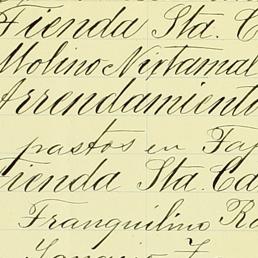 Tienda Sta. C
Molino Nixtamal
Arrendamiento
pastos en Tap
Tienda Sta. Ca
Tranquilino Ro